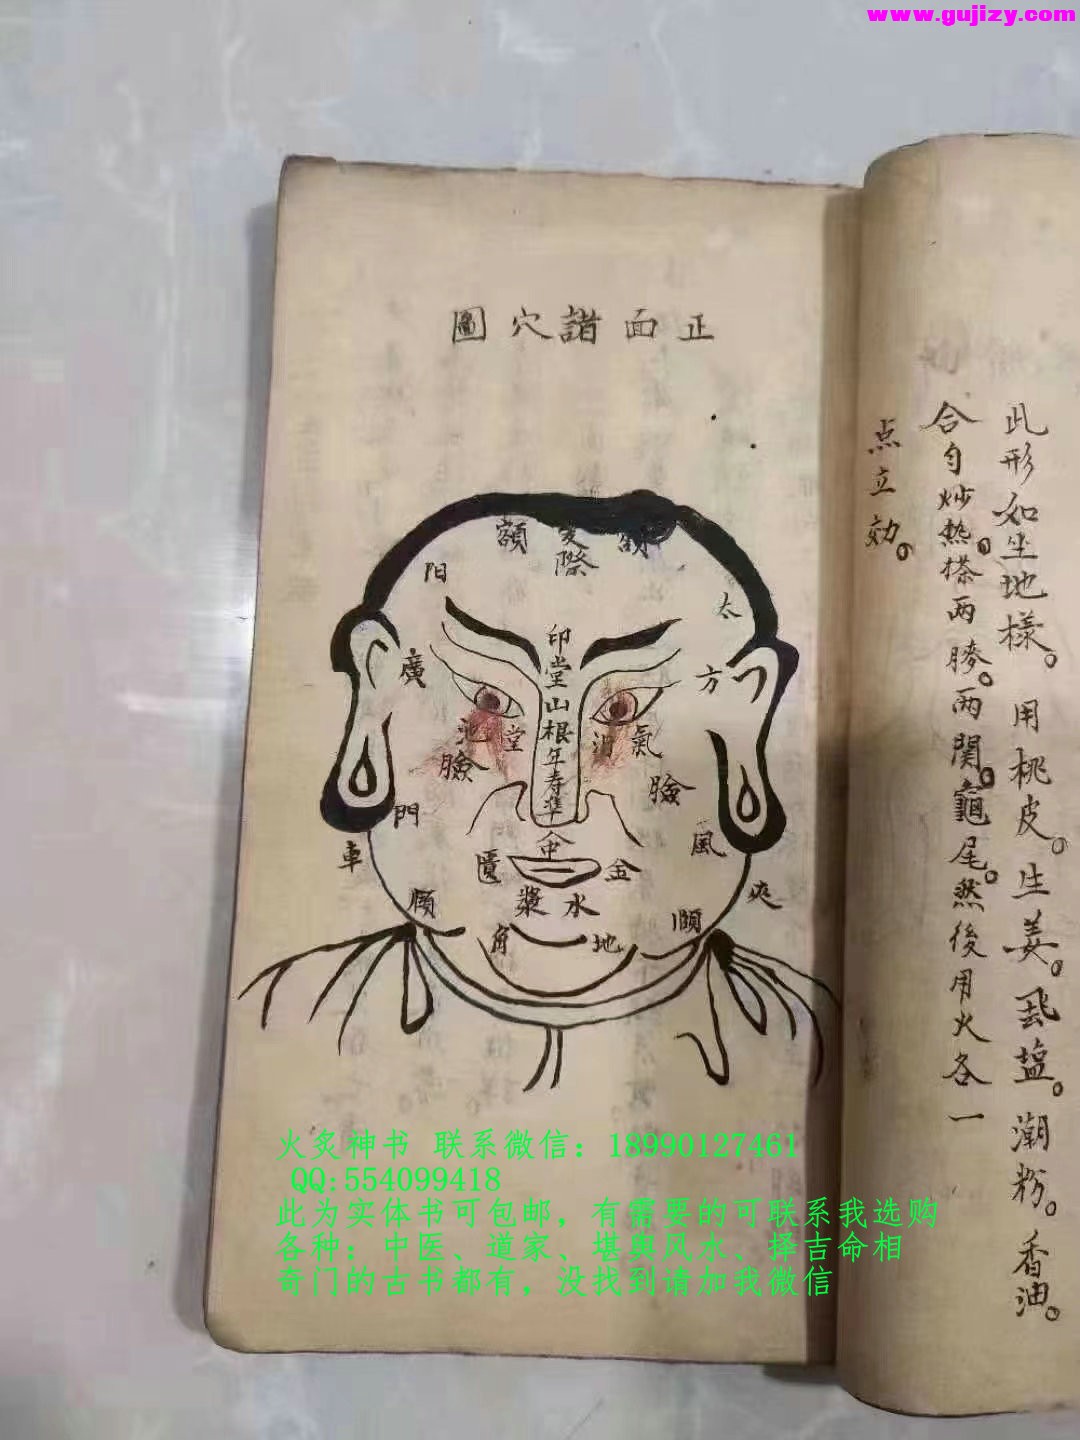 www.gujizy.com
此形如坐地樣。用桃皮。生姜。虱塩。潮粉。香油。
合匀炒熱。搽两胯。两関。龜尾。然後用火各一
点立効。
正面諸穴圖
額 髮際 額
太 阳
印堂山根年寿準
方 廣
氣 池
堂 池
臉 臉
風 門
中
金 匱
夾 車
水漿
頤 頋
地 角
火炙神书 联系微信：18990127461
QQ:554099418
此为实体书可包邮，有需要的可联系我选购
各种；中医、道家、堪舆风水、择吉命相
奇门的古书都有，没找到请加我微信